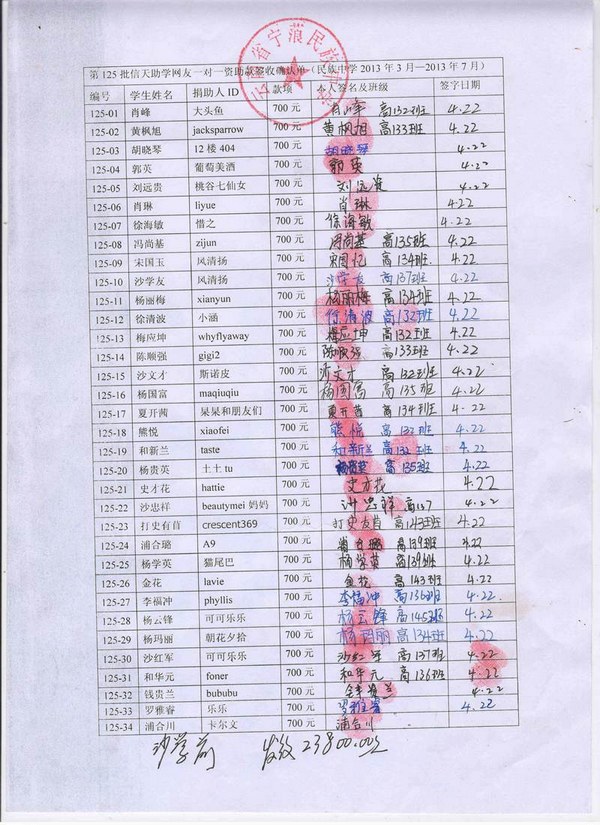 云南省宁蒗民族中学
第125批信天助学网友一对一资助款签收确认单（民族中学2013年3月—2013年7月）
编号 学生姓名 捐助人ID 款项 本人签名及班级 签字日期
125-01 肖峰 大头鱼 700元 肖峰 高132班 4.22
125-02 黄枫旭 jacksparrow 700元 黄枫旭 高133班 4.22
125-03 胡晓琴 12楼404 700元 胡晓琴 4.22
125-04 郭英 葡萄美酒 700元 郭英 4.22
125-05 刘远贵 桃谷七仙女 700元 刘远贵 4.22
125-06 肖琳 liyue 700元 肖琳 4.22
125-07 徐海敏 惜之 700元 徐海敏 4.22
125-08 冯尚基 zijun 700元 冯尚基 高135班 4.22
125-09 宋国玉 风清扬 700元 宋国忆 高134班 4.22
125-10 沙学友 风清扬 700元 沙学友 高137班 4.22
125-11 杨丽梅 xianyun 700元 杨丽梅 高134班 4.22
125-12 徐清波 小涵 700元 徐清波 高132班 4.22
125-13 梅应坤 whyflyaway 700元 梅应坤 高132班 4.22
125-14 陈顺强 gigi2 700元 陈顺强 高133班 4.22
125-15 沙文才 斯诺皮 700元 沙文才 高132班 4.22
125-16 杨国富 maqiuqiu 700元 杨国富 高135班 4.22
125-17 夏开茜 呆呆和朋友们 700元 夏开茜 高134班 4.22
125-18 熊悦 xiaofei 700元 熊悦 高132班 4.22
125-19 和新兰 taste 700元 和新兰 高132班 4.22
125-20 杨贵英 土土tu 700元 杨贵英 高135班 4.22
125-21 史才花 hattie 700元 史才花 4.22
125-22 沙忠祥 beautymei妈妈 700元 沙忠祥 高137 4.22
125-23 打史有苜 crescent369 700元 打史友苜 高143班 4.22
125-24 浦合璐 A9 700元 高139班 4.22
125-25 杨学英 猫尾巴 700元 杨学英 高139班 4.22
125-26 金花 lavie 700元 金花 高143班 4.22
125-27 李福冲 phyllis 700元 李福冲 高136班 4.22
125-28 杨云锋 可可乐乐 700元 杨云锋 高145班 4.22
125-29 杨玛丽 朝花夕拾 700元 杨玛丽 高134班 4.22
125-30 沙红军 可可乐乐 700元 沙红军 高137班 4.22
125-31 和华元 foner 700元 和华元 高136班 4.22
125-32 钱贵兰 bububu 700元 钱贵兰 4.22
125-33 罗雅睿 乐乐 700元 罗雅睿 4.22
125-34 浦合川 卡尔文 700元 浦合川
沙学前 发放23800.00元